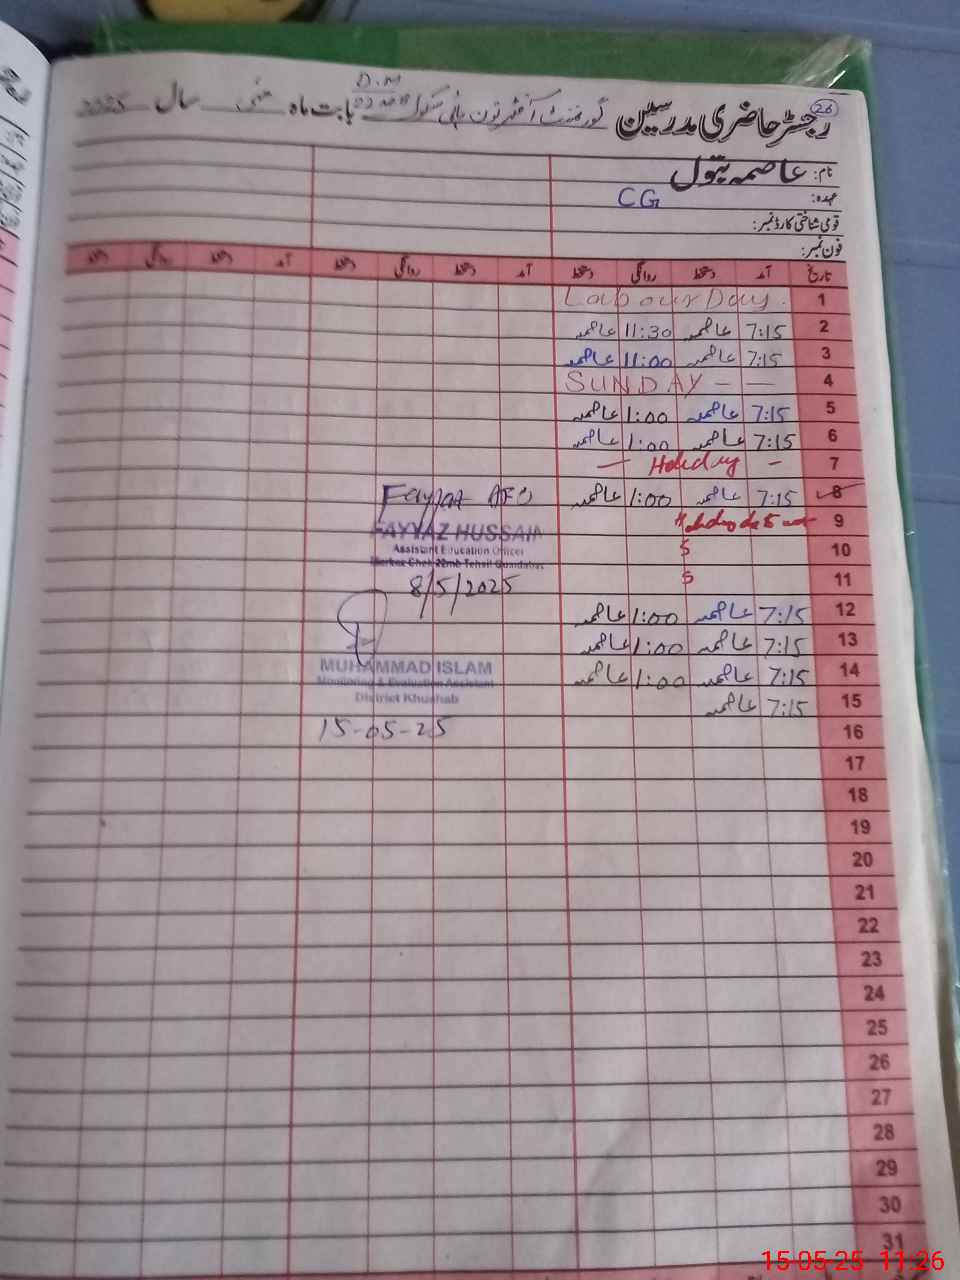 26
رجسٹر حاضری مدرسین گورنمنٹ آفٹر نون ہائی سکول 22 D.M بابت ماہ مئی سال 2025
نام: عاصمہ بتول
عہدہ: CG
قومی شناختی کارڈ نمبر:
فون نمبر:
تاریخ آمد دستخط روانگی دستخط آمد دستخط روانگی دستخط آمد دستخط روانگی دستخط
1 Labour Day.
2 7:15 عاصمہ 11:30 عاصمہ
3 7:15 عاصمہ 11:00 عاصمہ
4 SUNDAY - —
5 7:15 عاصمہ 1:00 عاصمہ
6 7:15 عاصمہ 1:00 عاصمہ
7 — Holiday -
8 7:15 عاصمہ 1:00 عاصمہ
Fayyaz AEO
9 Holiday
FAYYAZ HUSSAIN
Assistant Education Officer
Markaz Chak 22mb Tehsil Quaidabad
10 5
11 5
8/5/2025
12 7:15 عاصمہ 1:00 عاصمہ
13 7:15 عاصمہ 1:00 عاصمہ
14 7:15 عاصمہ 1:00 عاصمہ
MUHAMMAD ISLAM
Monitoring & Evaluation Assistant
District Khushab
15 7:15 عاصمہ
16
15-05-25
17
18
19
20
21
22
23
24
25
26
27
28
29
30
31
15-05-25 11:26